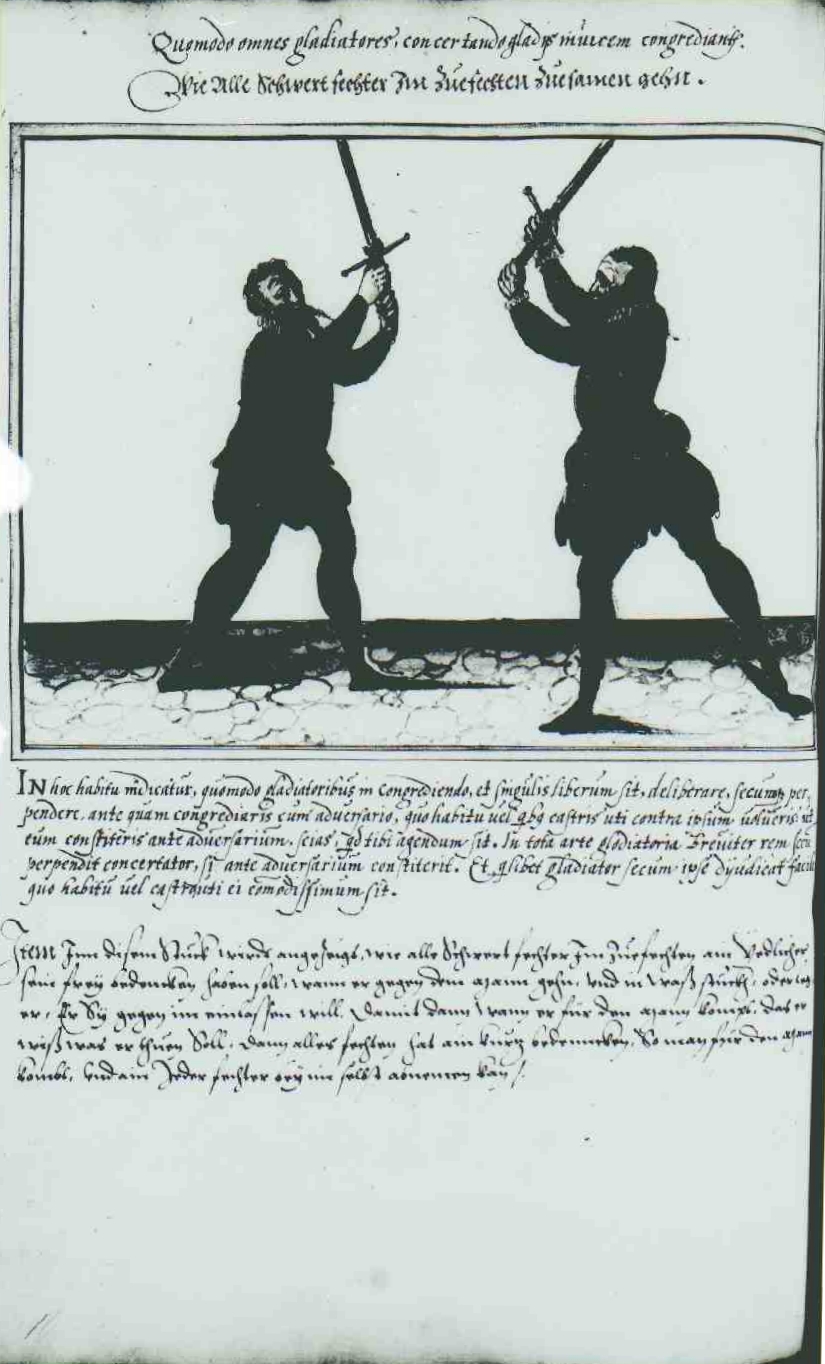 Quomodo omnes gladiatores, concertando gladijs inuicem congrediantr.
Wie Alle Schwert fechter Im Zuefechten Zuesamen gehn.
IN hoc habitu indicatur, quomodo gladiatoribus in congrediendo, et singulis liberum sit, deliberare, secumq per
pendere, ante quam congrediaris cum aduersario, quo habitu uel qbq castris uti contra ipsum uolueris, ut
cum constiteris ante aduersarium, scias, qd tibi agendum sit. In tota arte gladiatoria Breuiter rem secu
perpendit concertator, si ante aduersarium constiterit. Et qlibet gladiator secum ipse dyudicat facile
quo habitu uel castris uti ei comodissimum sit.
Item Inn disem Stuck wirdt angezeigt, wie alle Schwert fechter Im Zuefechten ain Yedlicher
sein frey bedencken haben soll, wann er gegen dem Mann gehn, vnd in waß stuckh, oder leg
er, Er Sy gegen im einlassen will. Damit dann wann er für den Mann kompt, das er
wiß was er thuen Soll. Dann alles fechten hat ain kurtz bedenncken, So man für den Mann
kombt, vnd ain Jeder fechter bey im selbst abnemen kan